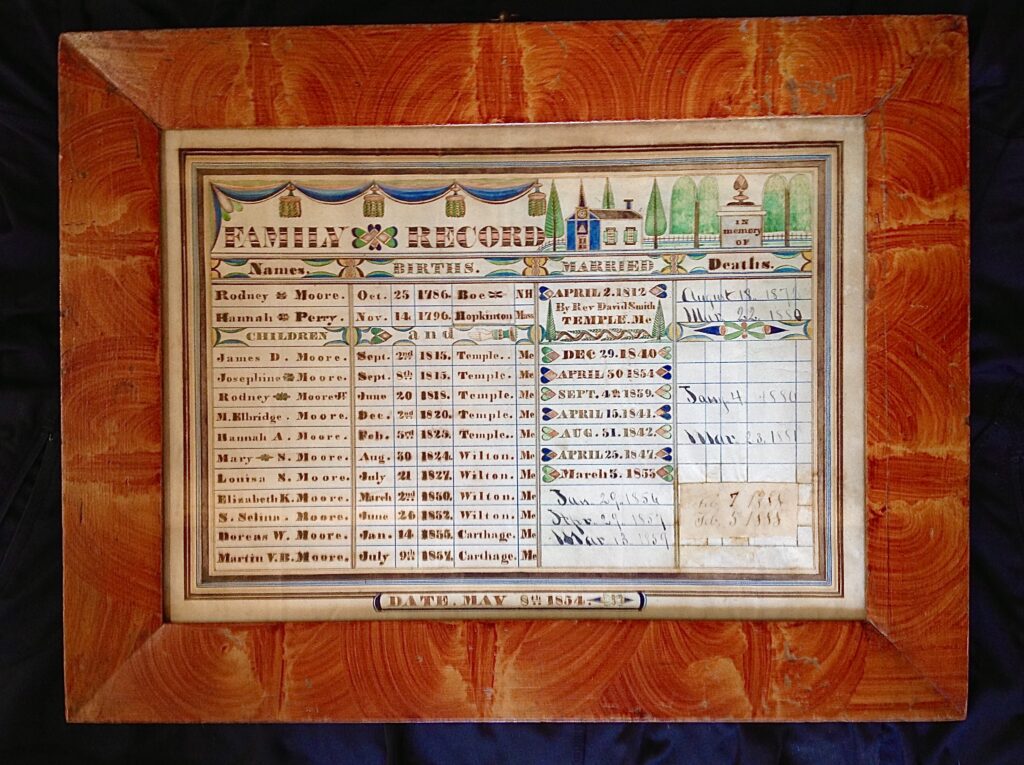 FAMILY RECORD
IN
memory
OF
Names. BIRTHS. MARRIED Deaths.
Rodney Moore. Oct. 25 1786. Boe NH APRIL 2. 1812 August 18.
Hannah Perry. Nov. 14 1796. Hopkinton Mass By Rev David Smith Mar 22
TEMPLE. Me
CHILDREN and
James D. Moore. Sept. 2nd 1813. Temple. Me DEC 29. 1840
Josephine Moore. Sept. 8th 1815. Temple. Me APRIL 30 1834
Rodney Moore Jr June 20 1818. Temple. Me SEPT. 4th 1839. Jany 4 1880
M. Elbridge. Moore. Dec. 2nd 1820. Temple. Me APRIL 15. 1841.
Hannah A. Moore. Feb. 3rd 1823. Temple. Me AUG. 31. 1842. Mar 23.
Mary S. Moore. Aug. 30 1824. Wilton. Me APRIL 25. 1847.
Louisa S. Moore. July 21 1827. Wilton. Me March 5. 1853
Elizabeth K. Moore. March 2nd 1830. Wilton. Me Jan. 29. 1854 Feb 7 1888
S. Selina. Moore. June 26 1832. Wilton. Me Apr. 29. 1857 Feb. 5 1888
Dorcas W. Moore. Jan. 14 1835. Carthage. Me Mar 13. 1859
Martin V.B. Moore. July 9th 1837. Carthage. Me
DATE. MAY 9th 1854.